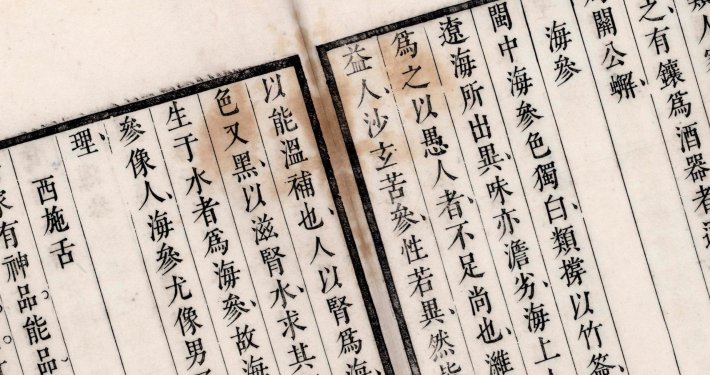 之有鑲為酒器者
關公蠏
海參
閩中海參色獨白類撐以竹簽
遼海所出異、味亦澹劣、海上人
為之以愚人者、不足尚也、濰
益人、沙玄苦參、性若異、然皆
以能溫補也、人以腎為海
色又黑、以滋腎水、求其
生于水者為海參、故海
參像人、海參尤像男
理、
西施舌
家有神品能品